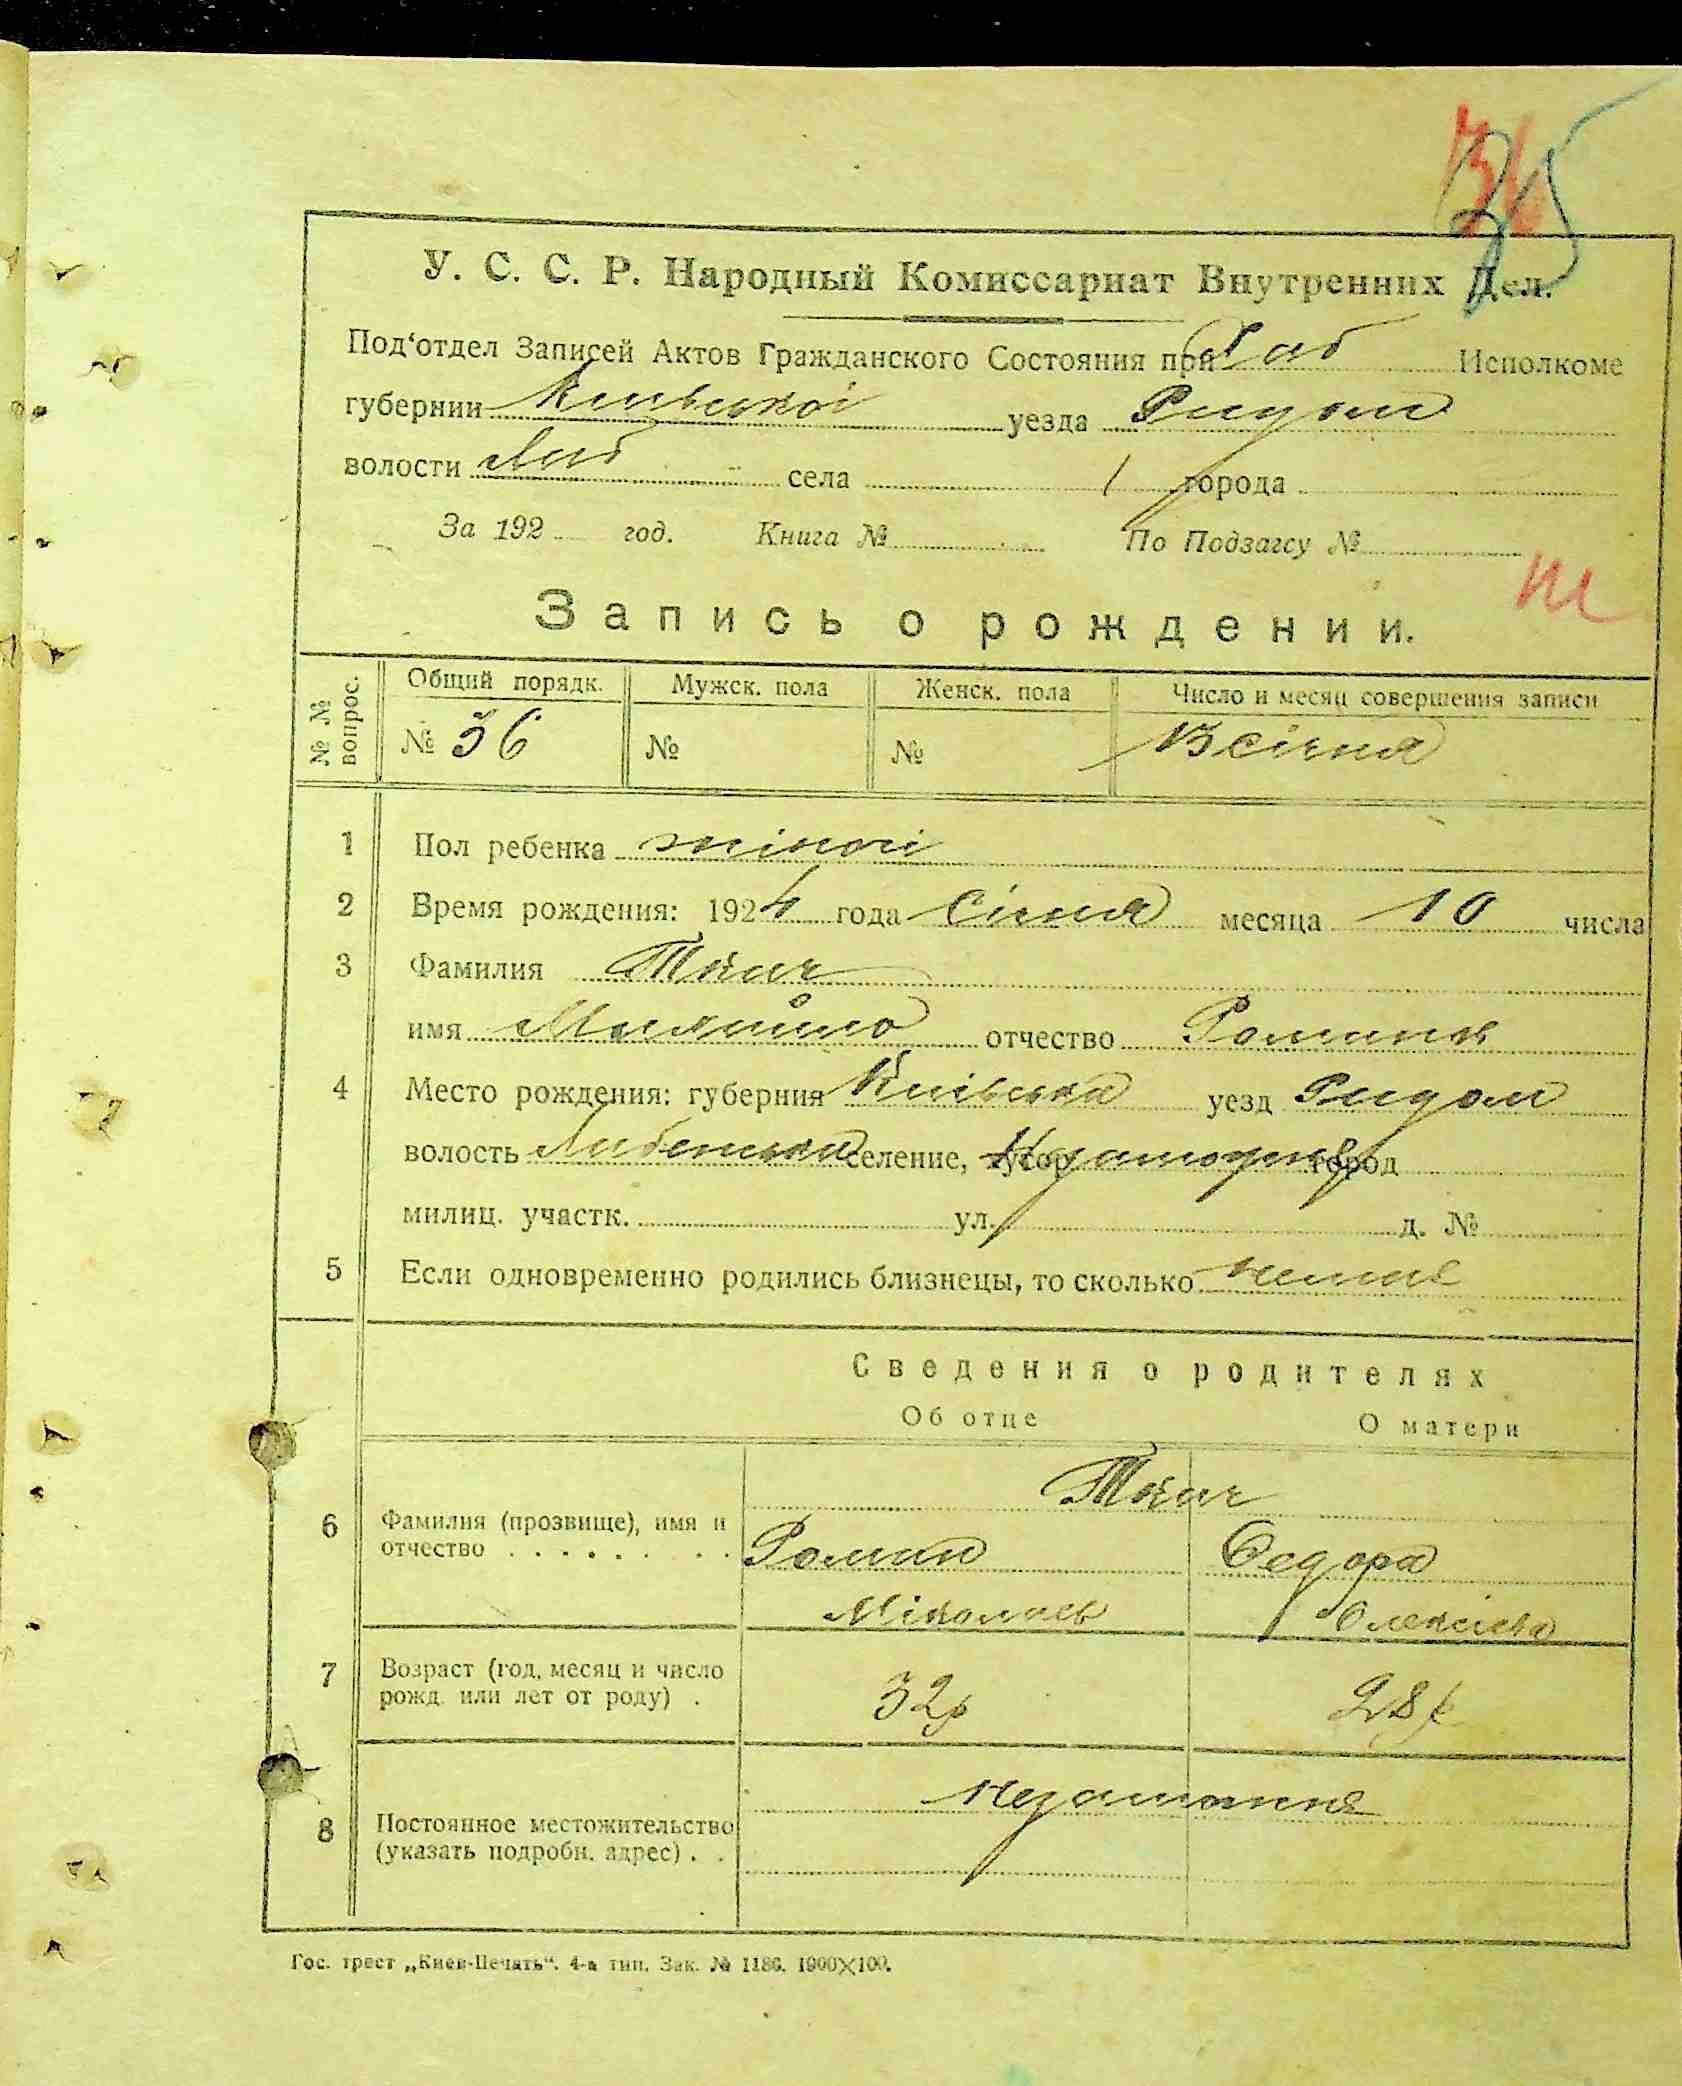 36
35
У. С. С. Р. Народный Комиссариат Внутренних Дел.
Под‘отдел Записей Актов Гражданского Состояния при Хаб Исполкоме
губернии Київської уезда Радом
волости Хаб села города
За 192 год. Книга № По Подзагсу №
Запись о рождении.
№ № вопрос. Общий порядк. Мужск. пола Женск. пола Число и месяц совершения записи
№ 36 № № 13 січня
1 Пол ребенка жіночі
2 Время рождения: 1924 года Січня месяца 10 числа
3 Фамилия Ткач
имя отчество Роман
4 Место рождения: губерния Київська уезд Радом
волость селение, хутор город
милиц. участк. ул. д. №
5 Если одновременно родились близнецы, то сколько немає
Сведения о родителях
Об отце О матери
Ткач
6 Фамилия (прозвище), имя и отчество . . . . . . . . Роман Федора
Міколаев Олексієва
7 Возраст (год, месяц и число рожд. или лет от роду) . 32р 28р
8 Постоянное местожительство (указать подробн. адрес) . .
Гос. трест „Киев-Печать“. 4-я тип. Зак. № 1186. 1900×100.